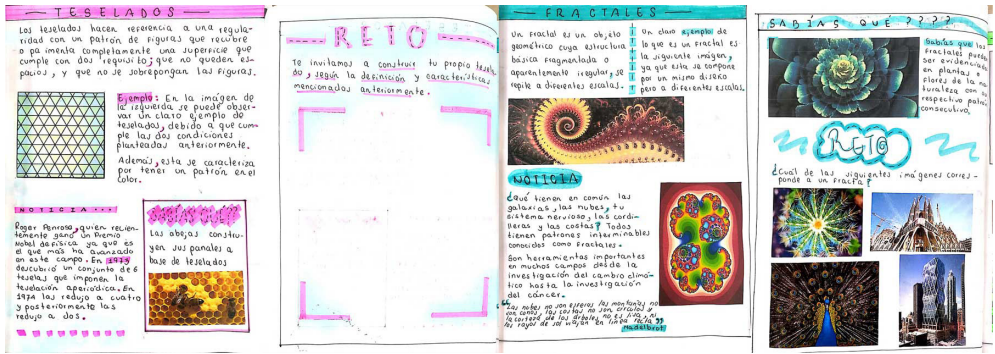 TESELADOS
Los teselados hacen referencia a una regula-
ridad con un patrón de figuras que recubre
o pavimenta completamente una superficie que
cumple con dos requisito; que no queden es-
pacios, y que no se sobrepongan las figuras.
Ejemplo: En la imágen de
la izquierda se puede obser-
var un claro ejemplo de
teselados, debido a que cum-
ple las dos condiciones
planteadas anteriormente.
Además, esta se caracteriza
por tener un patrón en el
color.
NOTICIA...
Roger Penrose, quien recien-
temente ganó un Premio
Nobel de física ya que es
el que más ha avanzado
en este campo. En 1973
descubrió un conjunto de 6
teselas que imponen la
teselación aperiódica. En
1974 las redujo a cuatro
y posteriormente las
redujo a dos.
¿SABÍAS QUE?
Las abejas constru-
yen sus panales a
base de teselados
RETO
Te invitamos a construir tu propio tesela-
do, según la definición y características
mencionadas anteriormente.
FRACTALES
Un fractal es un objeto
geométrico cuya estructura
básica fragmentada o
aparentemente irregular, se
repite a diferentes escalas.
Un claro ejemplo de
lo que es un fractal es
la siguiente imágen,
ya que esta se compone
por un mismo diseño
pero a diferentes escalas.
NOTICIA
¿Qué tienen en común las
galaxias, las nubes, tu
sistema nervioso, las cordi-
lleras y las costas? Todos
tienen patrones interminables
conocidos como fractales.
Son herramientas importantes
en muchos campos desde la
investigación del cambio climá-
tico hasta la investigación
del cáncer.
"Las nubes no son esferas las montañas no
son conos, las costas no son círculos y
la corteza de los árboles no es lisa, ni
los rayos de sol viajan en línea recta"
Madelbrot
SABÍAS QUÉ ????
Sabías que los
fractales pueden
ser evidenciados
en plantas o
flores de la na-
turaleza con su
respectivo patrón
consecutivo.
RETO
¿Cuál de las siguientes imágenes corres-
ponde a un fracta?